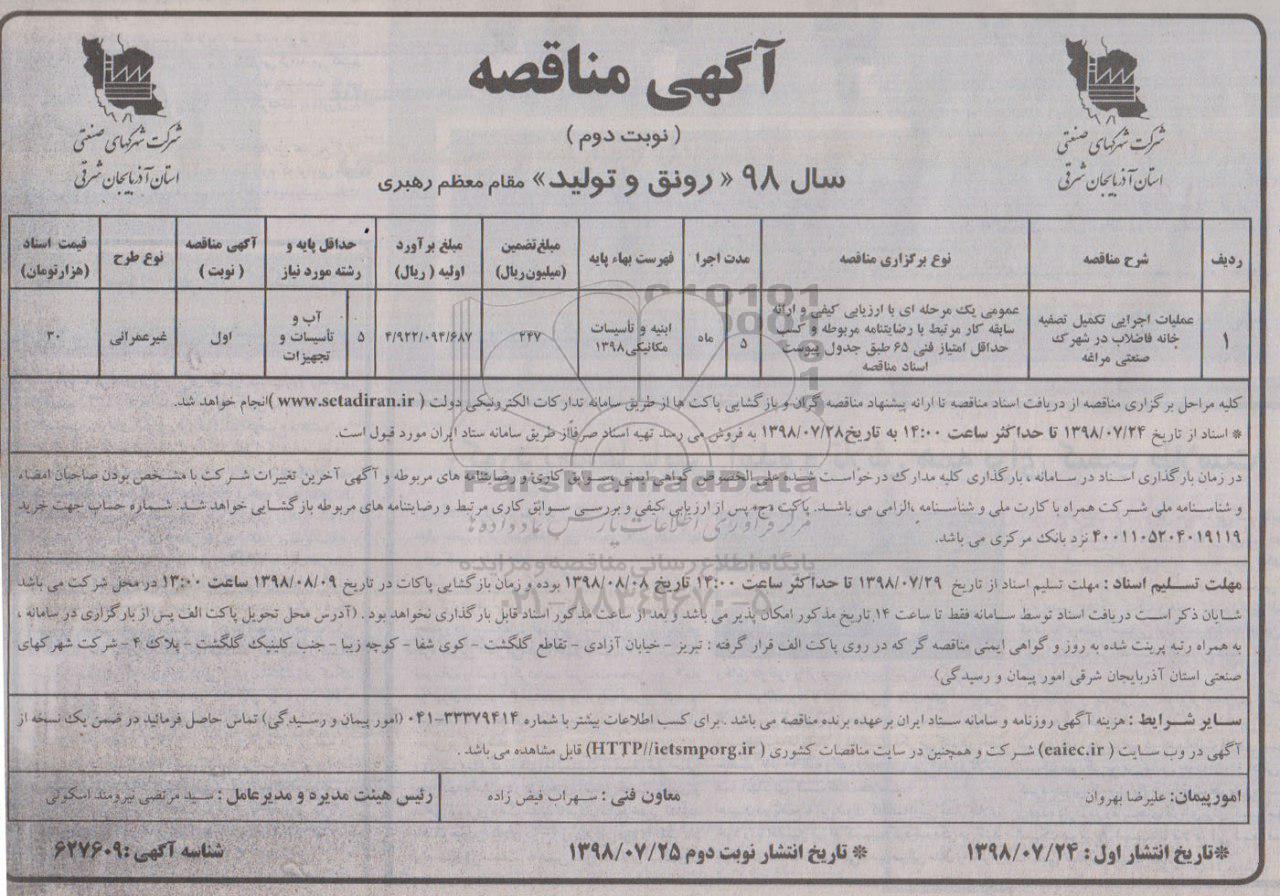 آگهی مناقصه
( نوبت دوم )
سال ۹۸ «رونق و تولید» مقام معظم رهبری
شرکت شهرکهای صنعتی
استان آذربایجان شرقی
شرکت شهرکهای صنعتی
استان آذربایجان شرقی
ردیف
شرح مناقصه
نوع برگزاری مناقصه
مدت اجرا
فهرست بهاء پایه
مبلغ تضمین
(میلیون ریال)
مبلغ برآورد
اولیه ( ریال)
حداقل پایه و
رشته مورد نیاز
آگهی مناقصه
( نوبت )
نوع طرح
قیمت اسناد
(هزارتومان)
۱
عملیات اجرایی تکمیل تصفیه
خانه فاضلاب در شهرک
صنعتی مراغه
عمومی یک مرحله ای با ارزیابی کیفی و ارائه
سابقه کار مرتبط با رضایتنامه مربوطه و کسب
حداقل امتیاز فنی ۶۵ طبق جدول پیوست
اسناد مناقصه
۵
ماه
ابنیه و تأسیسات
مکانیکی۱۳۹۸
۲۴۷
۴/۹۲۲/۰۹۴/۶۸۷
۵
آب و
تأسیسات و
تجهیزات
اول
غیرعمرانی
۳۰
کلیه مراحل برگزاری مناقصه از دریافت اسناد مناقصه تا ارائه پیشنهاد مناقصه گران و بازگشایی پاکت ها از طریق سامانه تدارکات الکترونیکی دولت ( www.setadiran.ir )انجام خواهد شد.
* اسناد از تاریخ ۱۳۹۸/۰۷/۲۴ تا حداکثر ساعت ۱۴:۰۰ به تاریخ۱۳۹۸/۰۷/۲۸ به فروش می رسد تهیه اسناد صرفاً از طریق سامانه ستاد ایران مورد قبول است.
در زمان بارگذاری اسناد در سامانه ، بارگذاری کلیه مدارک درخواست شده علی الخصوص گواهی ایمنی سوابق کاری و رضایتنامه های مربوطه و آگهی آخرین تغییرات شرکت با مشخص بودن صاحبان امضاء
و شناسنامه ملی شرکت همراه با کارت ملی و شناسنامه ،الزامی می باشد. پاکت «ج» پس از ارزیابی کیفی و بررسی سوابق کاری مرتبط و رضایتنامه های مربوطه بازگشایی خواهد شد. شماره حساب جهت خرید
۴۰۰۱۱۰۵۲۰۴۰۱۹۱۱۹ نزد بانک مرکزی می باشد.
مهلت تسلیم اسناد : مهلت تسلیم اسناد از تاریخ ۱۳۹۸/۰۷/۲۹ تا حداکثر ساعت ۱۴:۰۰ تاریخ ۱۳۹۸/۰۸/۰۸ بوده و زمان بازگشایی پاکات در تاریخ ۱۳۹۸/۰۸/۰۹ ساعت ۱۳:۰۰ در محل شرکت می باشد
شایان ذکر است دریافت اسناد توسط سامانه فقط تا ساعت ۱۴ تاریخ مذکور امکان پذیر می باشد و بعد از ساعت مذکور اسناد قابل بارگذاری نخواهد بود . (آدرس محل تحویل پاکت الف پس از بارگزاری در سامانه ،
به همراه رتبه پرینت شده به روز و گواهی ایمنی مناقصه گر که در روی پاکت الف قرار گرفته : تبریز – خیابان آزادی – تقاطع گلگشت – کوی شفا – کوچه زیبا – جنب کلینیک گلگشت – پلاک ۴ – شرکت شهرکهای
صنعتی استان آذربایجان شرقی امور پیمان و رسیدگی)
سایر شرایط : هزینه آگهی روزنامه و سامانه ستاد ایران برعهده برنده مناقصه می باشد . برای کسب اطلاعات بیشتر با شماره ۳۳۳۷۹۴۱۴-۰۴۱ (امور پیمان و رسیدگی) تماس حاصل فرمائید در ضمن یک نسخه از
آگهی در وب سایت ( eaiec.ir) شرکت و همچنین در سایت مناقصات کشوری ( HTTP//ietsmporg.ir) قابل مشاهده می باشد .
امورپیمان: علیرضا بهروان
معاون فنی : سهراب فیض زاده
رئیس هیئت مدیره و مدیرعامل : سید مرتضی نیرومند اسکوئی
*تاریخ انتشار اول : ۱۳۹۸/۰۷/۲۴
* تاریخ انتشار نوبت دوم ۱۳۹۸/۰۷/۲۵
شناسه آگهی :۶۲۷۶۰۹
ParsNamadData
مرکز فرآوری اطلاعات پارس نماد داده ها
پایگاه اطلاع رسانی مناقصه و مزایده
۰۲۱-۸۸۳۴۹۶۷۰-۵